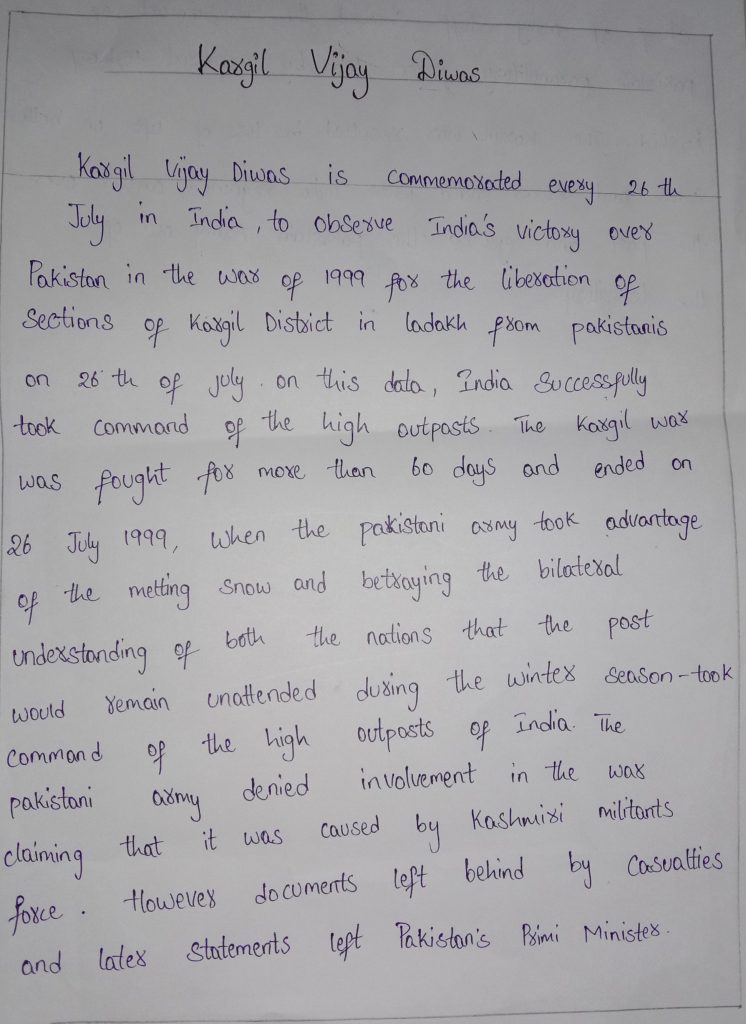 Kargil Vijay Diwas
Kargil Vijay Diwas is commemorated every 26 th
July in India, to observe India's victory over
Pakistan in the war of 1999 for the liberation of
Sections of Kargil District in ladakh from pakistanis
on 26 th of july. on this data, India Successfully
took command of the high outposts. The Kargil war
was fought for more than 60 days and ended on
26 July 1999, when the pakistani army took advantage
of the metting snow and betraying the bilateral
understanding of both the nations that the post
would remain unattended during the winter season-took
command of the high outposts of India. The
pakistani army denied involvement in the war
claiming that it was caused by Kashmiri militants
force. However documents left behind by Casualties
and later statements left Pakistan's Primi Minister.